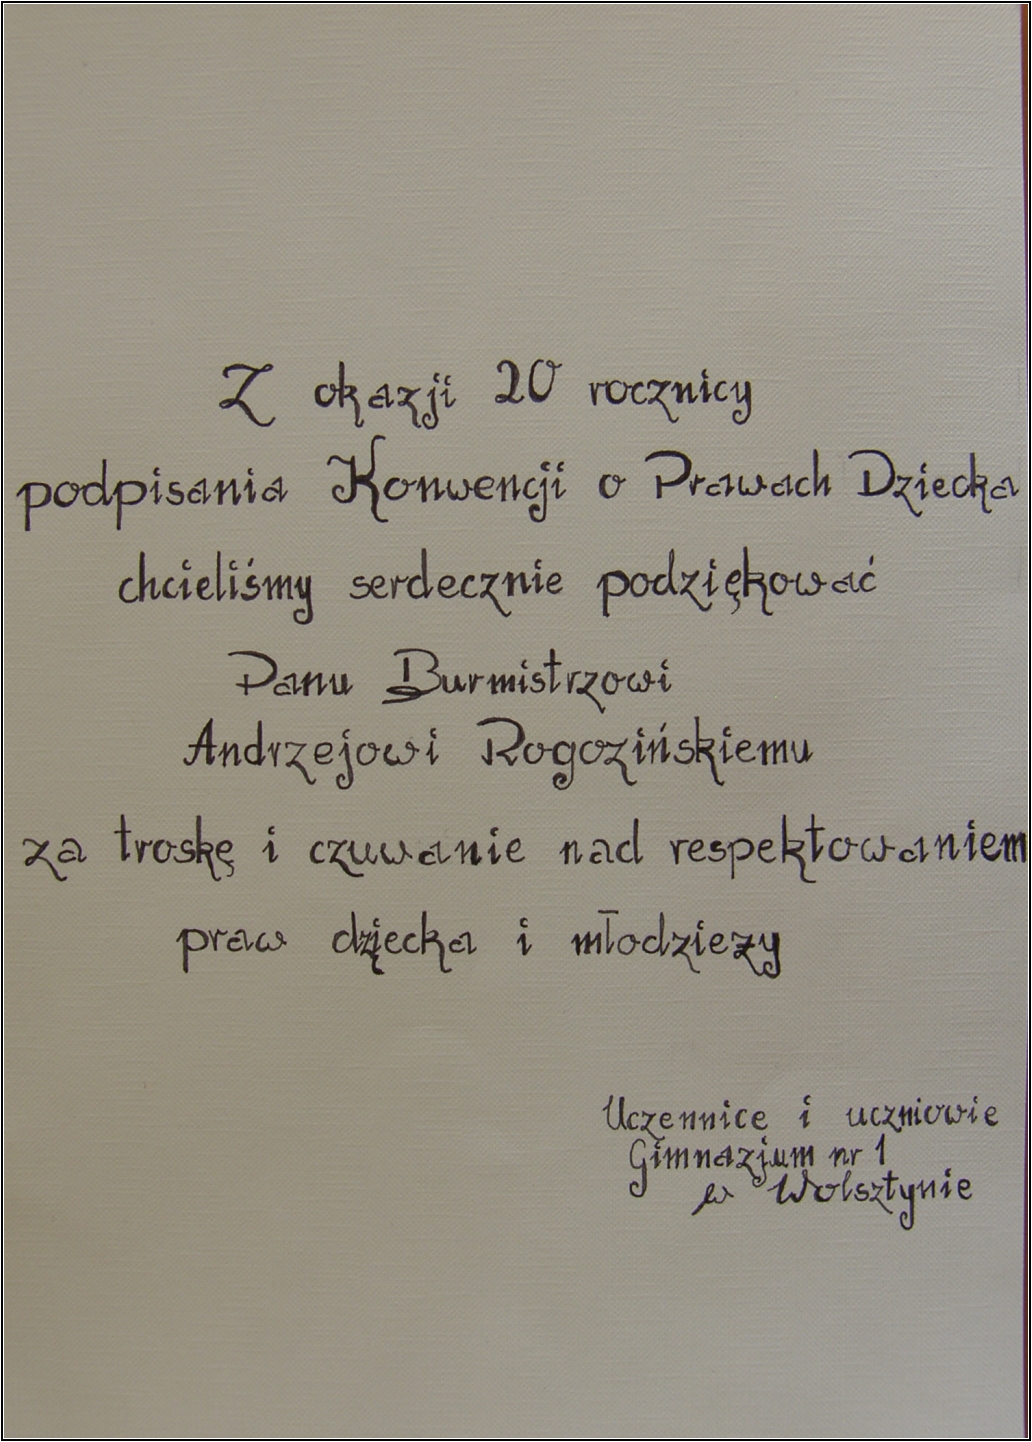 Z okazji 20 rocznicy
podpisania Konwencji o Prawach Dziecka
chcieliśmy serdecznie podziękować
Panu Burmistrzowi
Andrzejowi Rogozińskiemu
za troskę i czuwanie nad respektowaniem
praw dziecka i młodzieży
Uczennice i uczniowie
Gimnazjum nr 1
w Wolsztynie